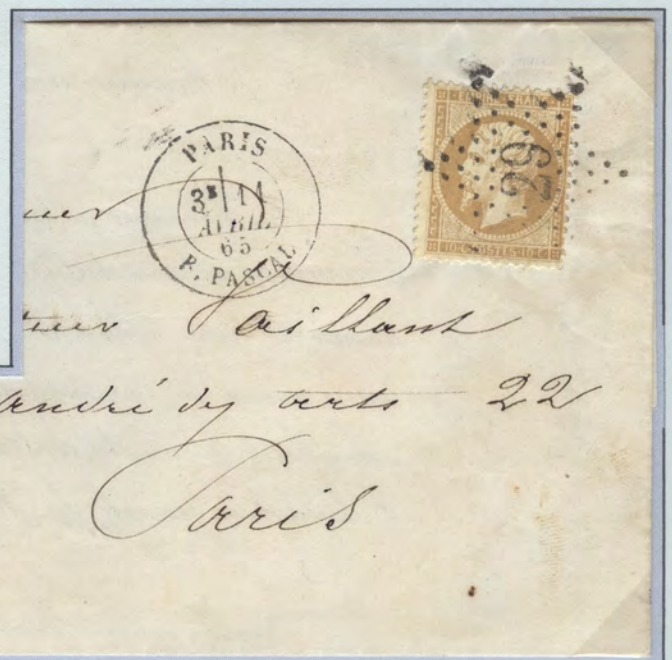 PARIS
3E 11
AVRIL
65
R. PASCAL
EMPIRE FRANC
29
10 C POSTES 10 C
Vaillant
andré des arts 22
Paris